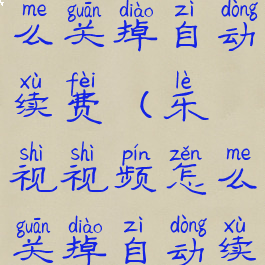 me guān diào zì dòng
么关掉自动
xù fèi lè
续费(乐
shì shì pín zěn me
视视频怎么
guān diào zì dòng xù
关掉自动续